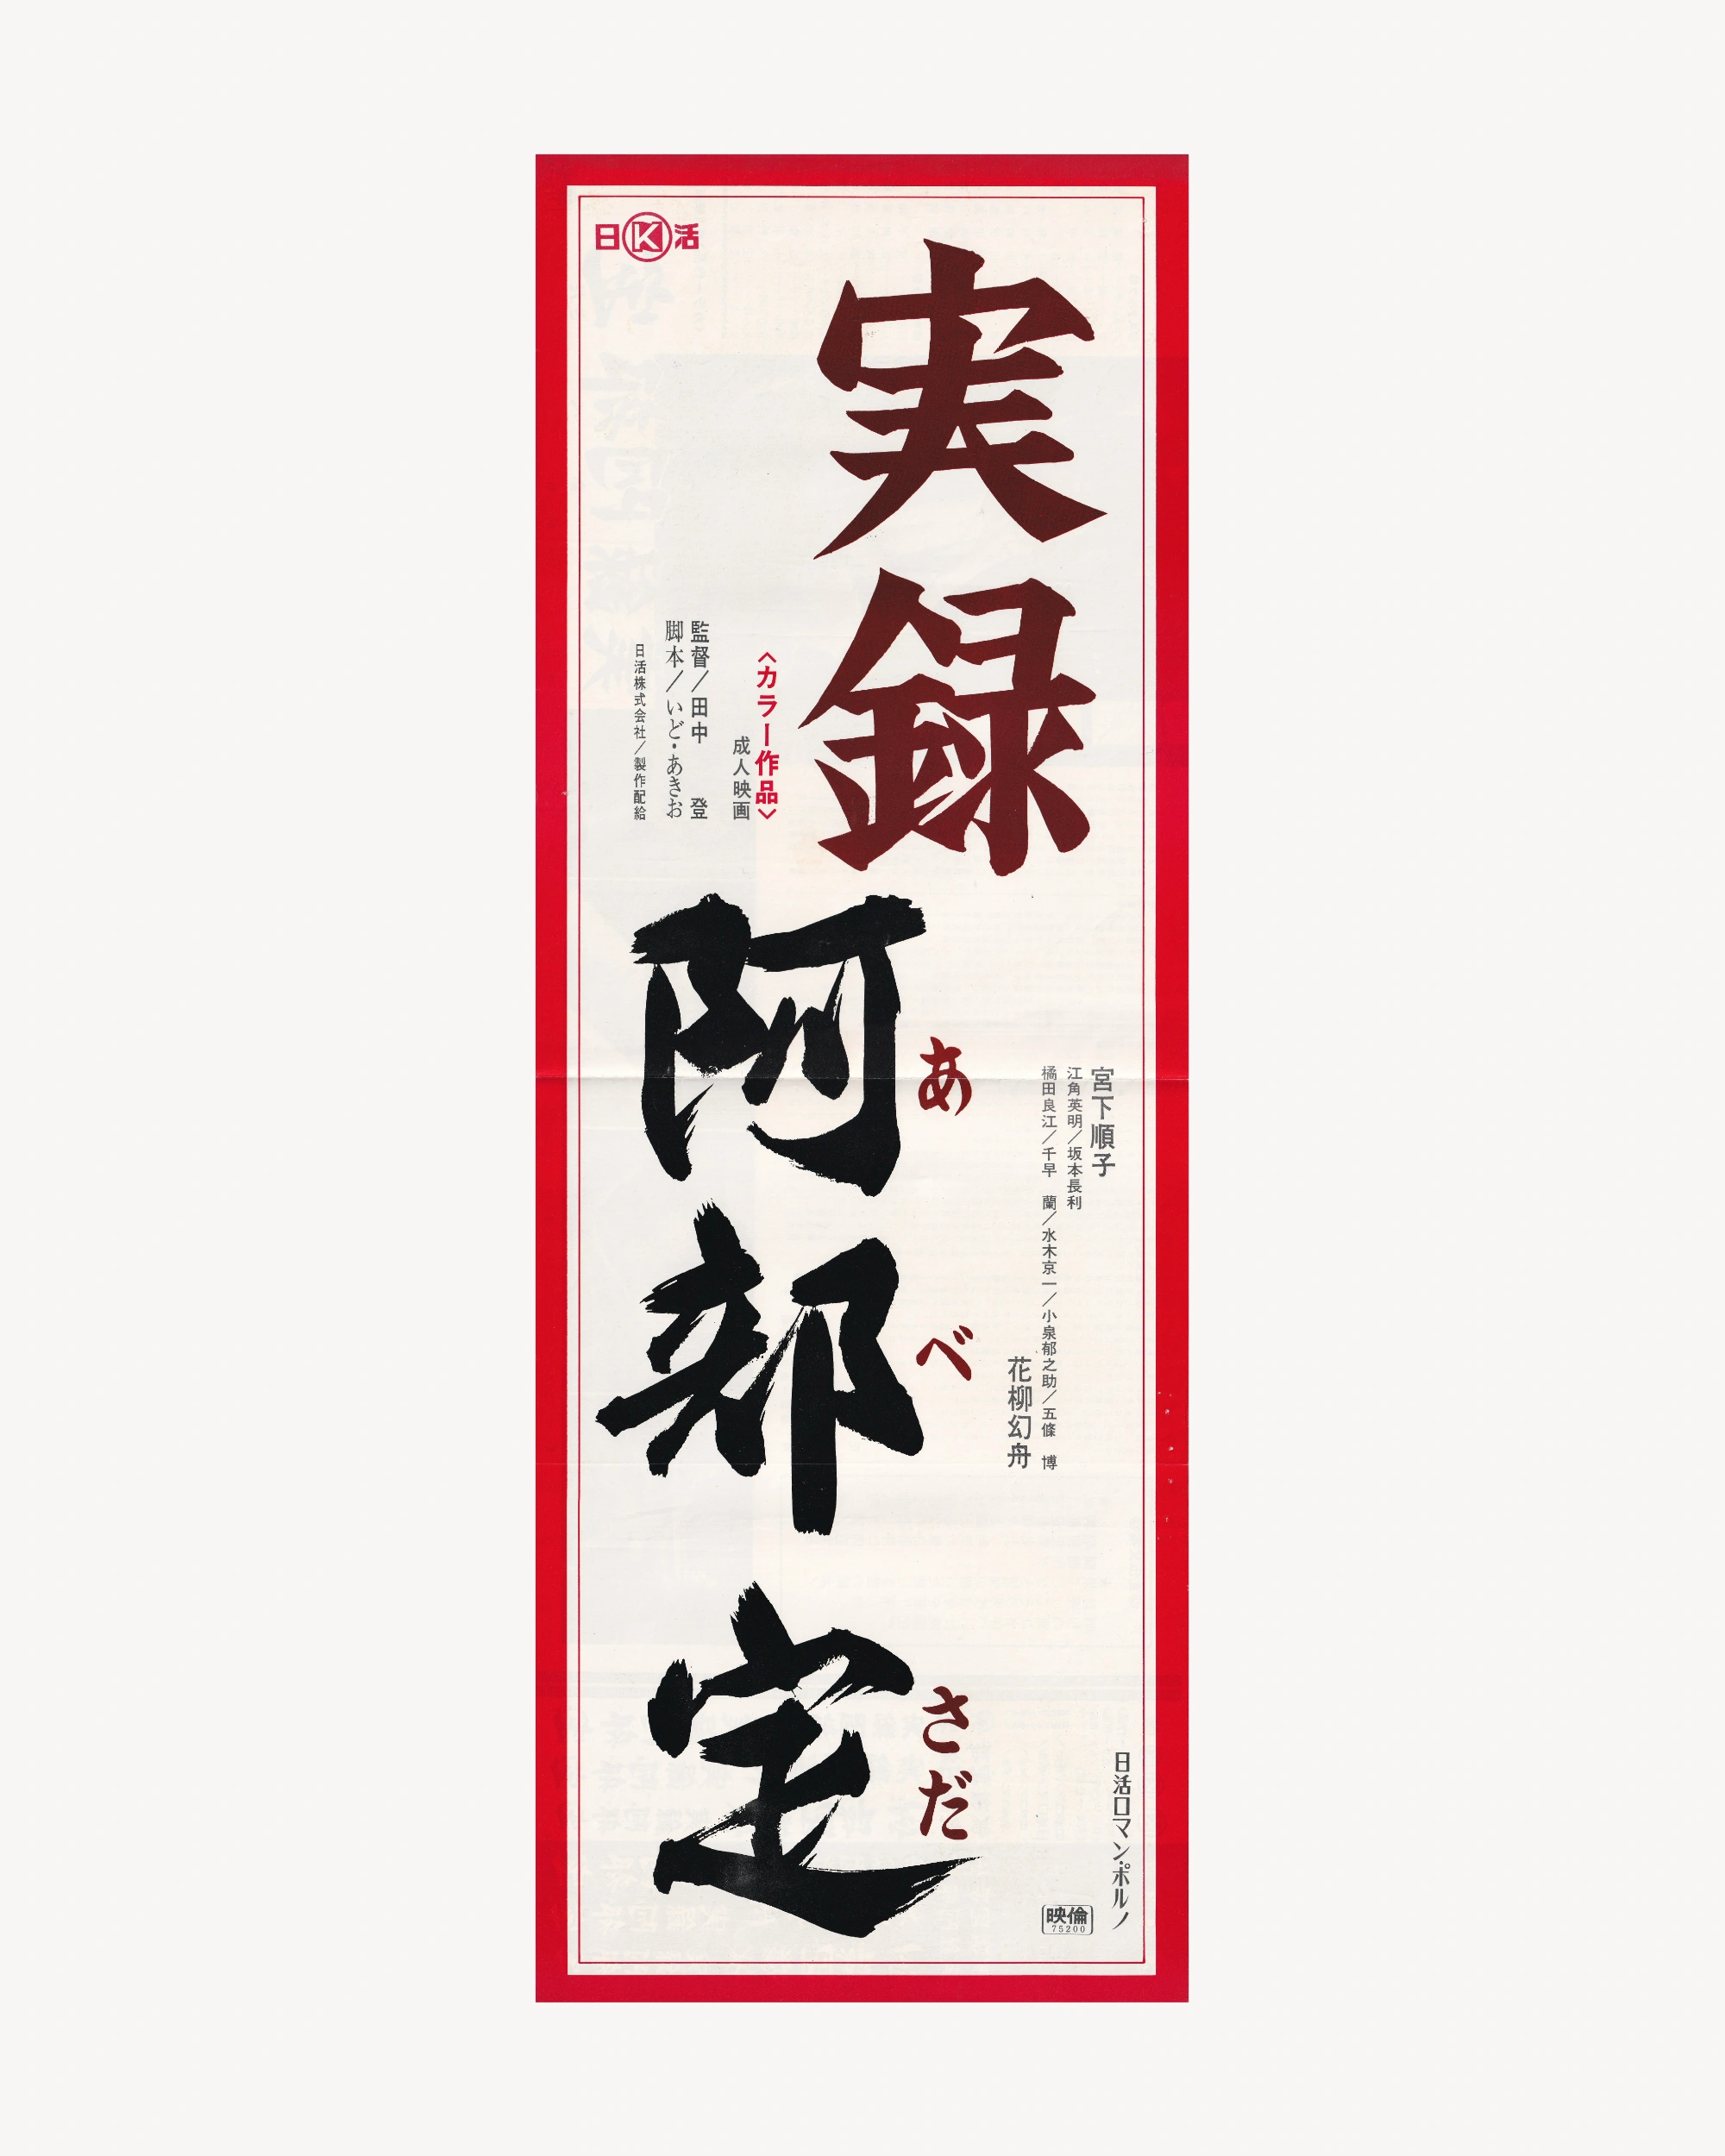 日活
K
実録
阿部定
あべ
さだ
〈カラー作品〉
成人映画
監督／田中　登
脚本／いど・あきお
日活株式会社／製作配給
宮下順子
江角英明／坂本長利
橘田良江／千早　蘭／水木京一／小泉郁之助／五條　博
花柳幻舟
日活ロマン・ポルノ
映倫
75200